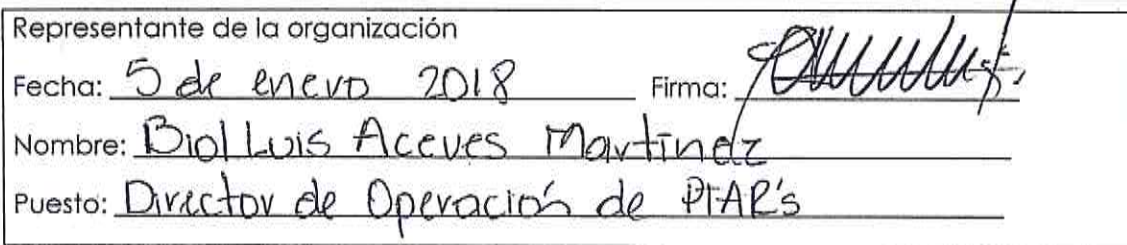 Representante de la organización
Fecha: 5 de enero 2018 Firma:
Nombre: Biol Luis Aceves Martínez
Puesto: Director de Operación de PTAR's